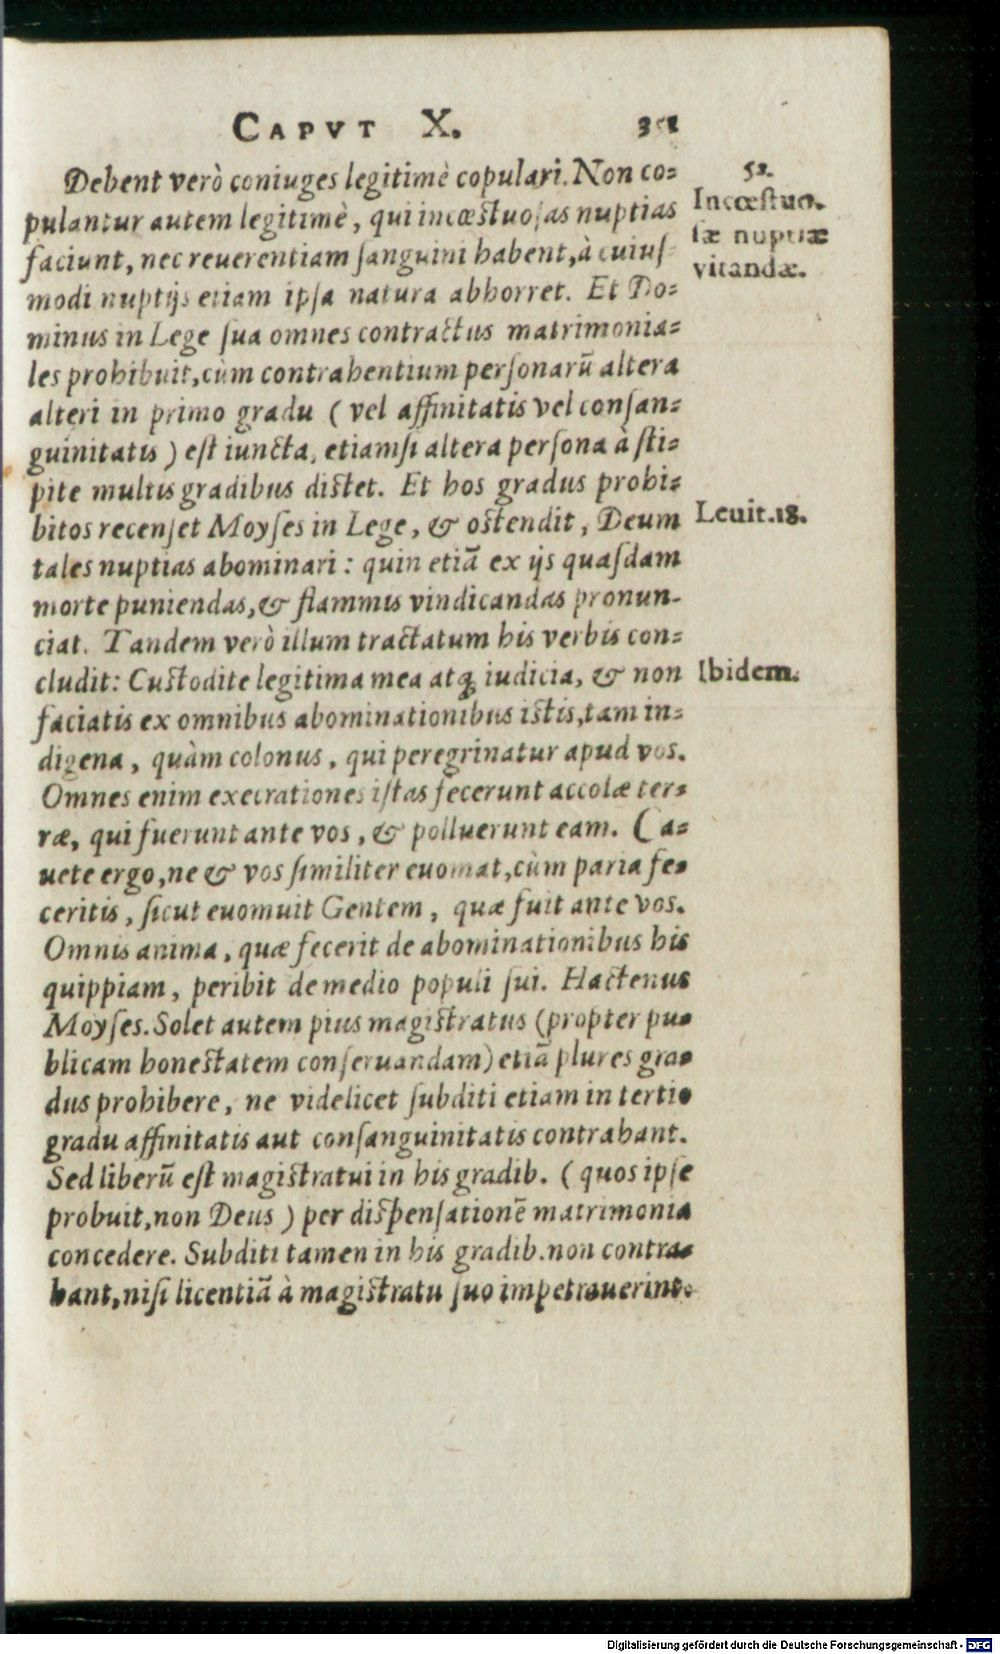 CAPVT X. 351
Debent verò coniuges legitimè copulari. Non co-
pulantur autem legitimè, qui incœstuosas nuptias
faciunt, nec reuerentiam sanguini habent, à cuius-
modi nuptijs etiam ipsa natura abhorret. Et Do-
minus in Lege sua omnes contractus matrimonia-
les prohibuit, cùm contrahentium personarũ altera
alteri in primo gradu ( vel affinitatis vel consan-
guinitatis ) est iuncta, etiamsi altera persona à sti-
pite multis gradibus distet. Et hos gradus prohi-
bitos recenset Moyses in Lege, & ostendit, Deum
tales nuptias abominari : quin etiã ex ijs quasdam
morte puniendas, & flammis vindicandas pronun-
ciat. Tandem verò illum tractatum his verbis con-
cludit: Custodite legitima mea atq; iudicia, & non
faciatis ex omnibus abominationibus istis, tam in-
digena, quàm colonus, qui peregrinatur apud vos.
Omnes enim execrationes istas fecerunt accolæ ter-
ræ, qui fuerunt ante vos, & polluerunt eam. Ca-
uete ergo, ne & vos similiter euomat, cùm paria fe-
ceritis, sicut euomuit Gentem, quæ fuit ante vos.
Omnis anima, quæ fecerit de abominationibus his
quippiam, peribit de medio populi sui. Hactenus
Moyses. Solet autem pius magistratus (propter pu-
blicam honestatem conseruandam) etiã plures gra-
dus prohibere, ne videlicet subditi etiam in tertio
gradu affinitatis aut consanguinitatis contrahant.
Sed liberũ est magistratui in his gradib. ( quos ipse
probuit, non Deus ) per dispensationẽ matrimonia
concedere. Subditi tamen in his gradib. non contra-
hant, nisi licentiã à magistratu suo impetrauerint.
52.
Incœstuo-
sæ nuptiæ
vitandæ.
Leuit.18.
Ibidem.
Digitalisierung gefördert durch die Deutsche Forschungsgemeinschaft - DFG